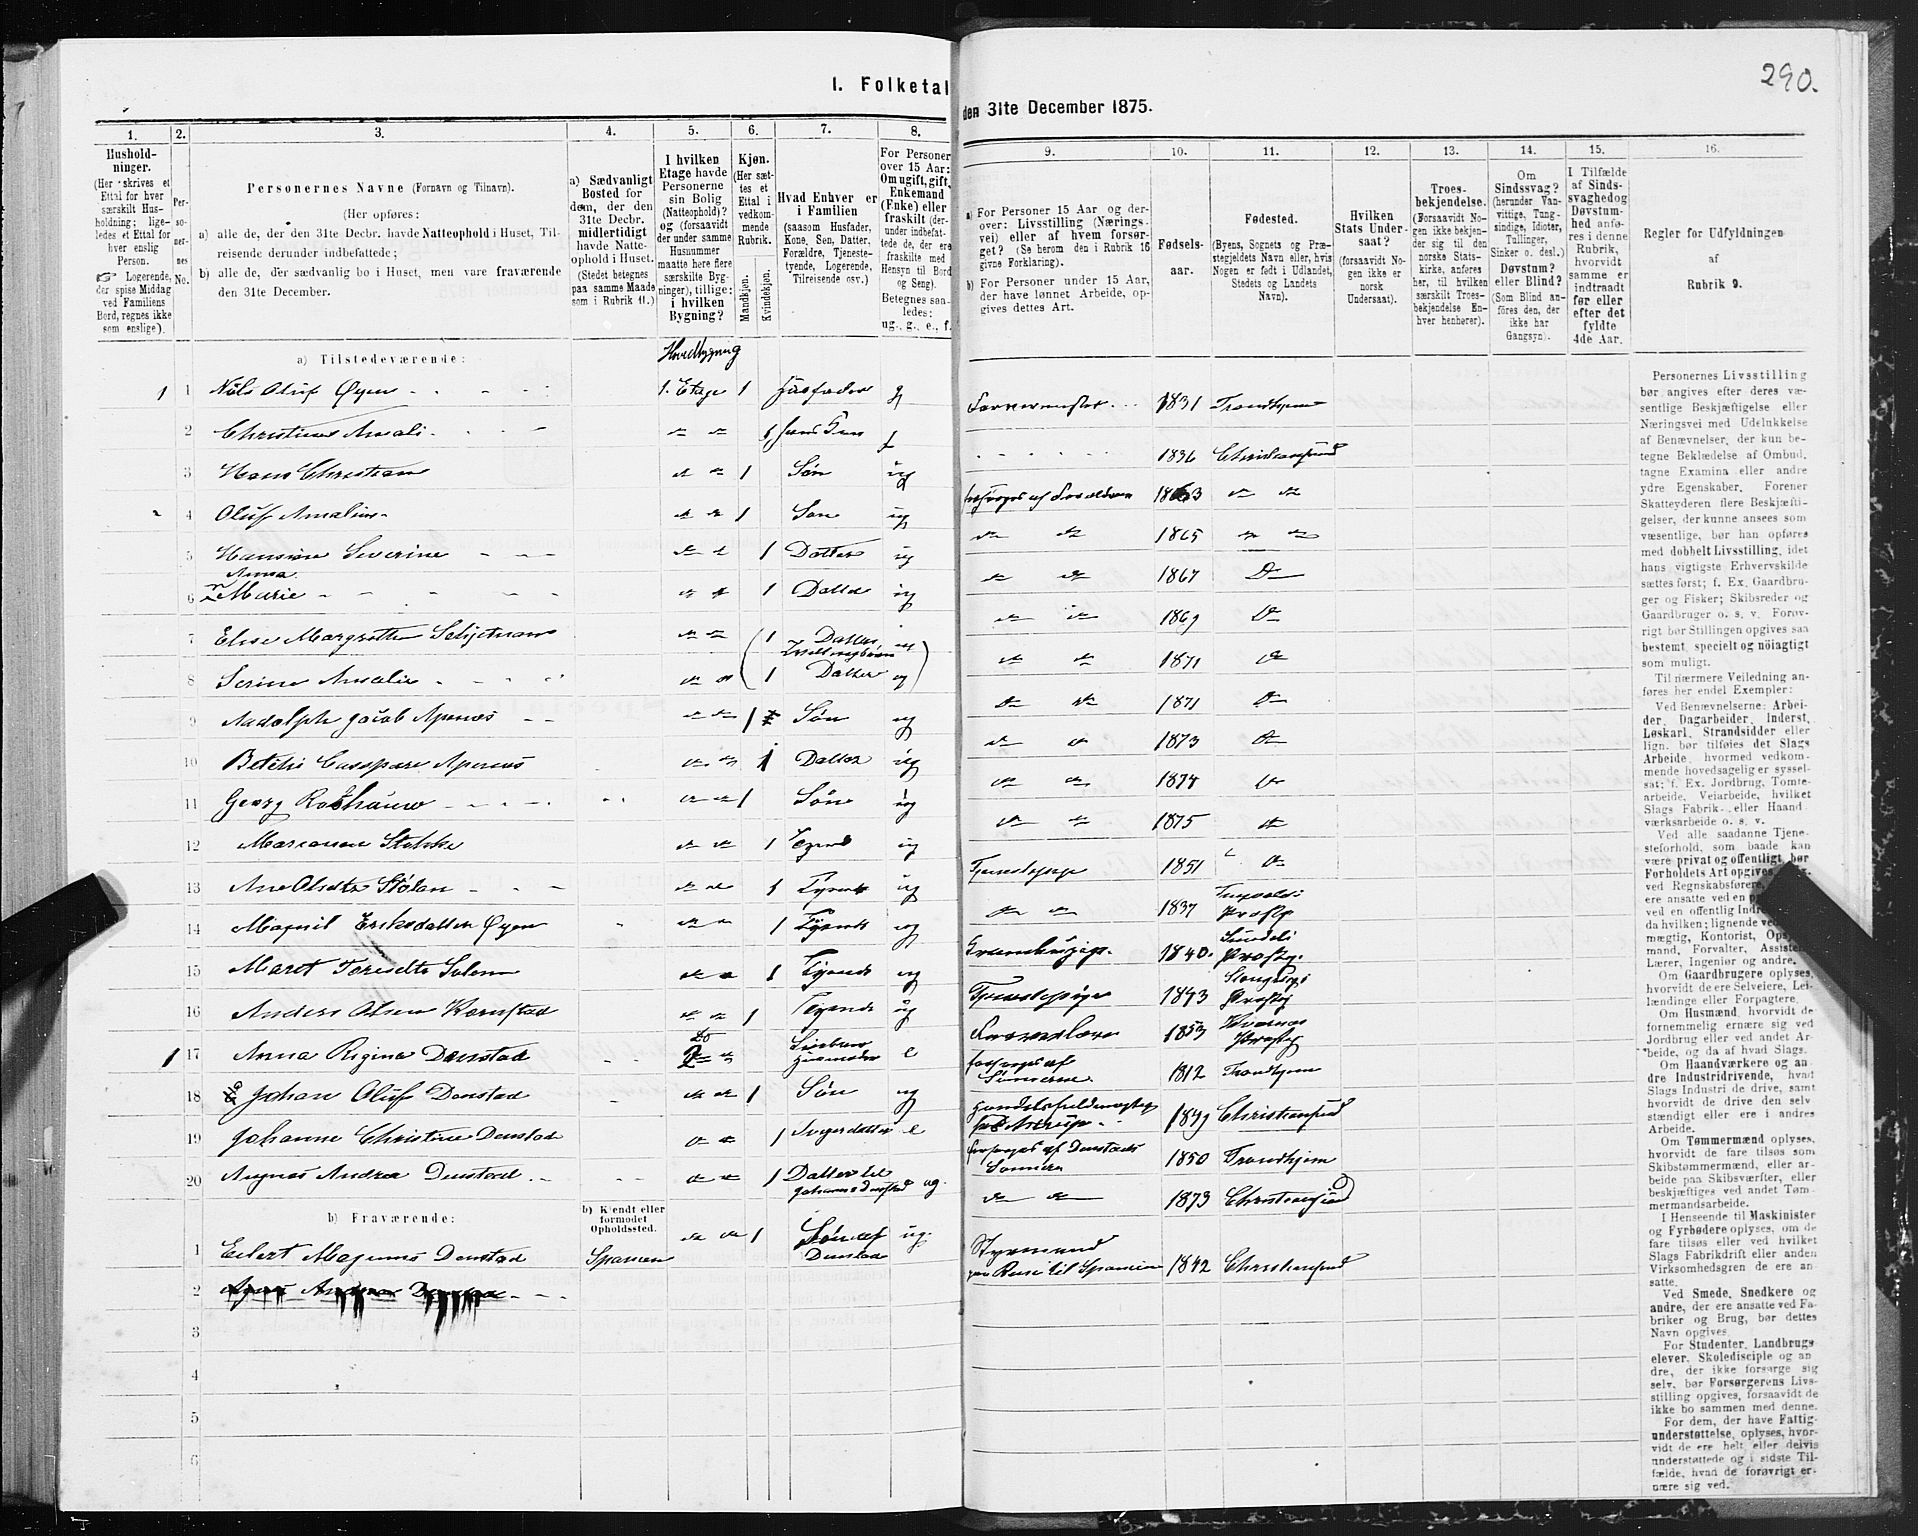 290.
I. Folketal
den 31te December 1875.
1.
2.
3.
4.
5.
6.
7.
8.
9.
10.
11.
12.
13.
14.
15.
16.
Hushold-
ninger.
(Her skrives et
Ettal for hver
særskilt Hus-
holdning; lige-
ledes et Ettal for
hver enslig
Person.
☞ Logerende,
der spise Middag
ved Familiens
Bord, regnes ikke
som enslige).
Per-
so-
ner-
nes
No.
Personernes Navne (Fornavn og Tilnavn).
(Her opføres:
a) alle de, der den 31te Decbr. havde Natteophold i Huset, Til-
reisende derunder indbefattede;
b) alle de, der sædvanlig bo i Huset, men vare fraværende
den 31te December.
a) Sædvanligt
Bosted for
dem, der den
31te Decbr.
midlertidigt
havde Natte-
ophold i Huset.
(Stedet betegnes
paa samme Maade
som i Rubrik 11.)
I hvilken
Etage havde
Personerne
sin Bolig
(Natteophold)?
og (forsaavidt
der under samme
Husnummer
maatte høre flere
særskilte Byg-
ninger), tillige:
i hvilken
Bygning?
Kjøn.
(Her sæt-
tes et
Ettal i
vedkom-
mende
Rubrik.
Mandkjøn.
Kvindekjøn.
Hvad Enhver er
i Familien
(saasom Husfader,
Kone, Søn, Datter,
Forældre, Tjeneste-
tyende, Logerende,
Tilreisende osv.)
For Personer
over 15 Aar:
Om ugift, gift,
Enkemand
(Enke) eller
fraskilt (der-
under indbefat-
tede de, der ere
fraskilte med
Hensyn til Bord
og Seng).
Betegnes saa-
ledes:
ug., g., e., f.
a) For Personer 15 Aar og der-
over: Livsstilling (Nærings-
vei) eller af hvem forsør-
get? (Se herom den i Rubrik 16
givne Forklaring).
b) For Personer under 15 Aar,
der have lønnet Arbeide, op-
gives dettes Art.
Fødsels-
aar.
Fødested.
(Byens, Sognets og Præ-
stegjeldets Navn eller, hvis
Nogen er født i Udlandet,
Stedets og Landets
Navn).
Hvilken
Stats Under-
saat?
(forsaavidt No-
gen ikke er
norsk
Undersaat).
Troes-
bekjendelse.
(Forsaavidt No-
gen ikke bekjen-
der sig til den
norske Stats-
kirke, anføres
her, til hvilken
særskilt Troes-
bekjendelse En-
hver henhører).
Om
Sindssvag?
(herunder Van-
vittige, Tung-
sindige, Idioter,
Tullinger,
Sinker o. desl.)
Døvstum?
eller Blind?
(Som Blind an-
føres den, der
ikke har
Gangsyn).
I Tilfælde
af Sinds-
svaghed og
Døvstum-
hed anfø-
res i denne
Rubrik,
hvorvidt
samme er
indtraadt
før eller
efter det
fyldte
4de Aar.
Regler for Udfyldningen
af
Rubrik 9.
a) Tilstedeværende:
Hovedbygning
1 1 Nils Oluf Øyen 1. Etage 1 Husfader g 1831 Trondhjem
2 Christiane Amali 1 hans Kone g 1836 Christiansund
3 Hans Christian 1 Søn ug forsørges af Forældrene 1863
4 Oluf Amalius 1 Søn ug 1865
5 Hansine Severine 1 Datter ug 1867 Do
Anna
6 Marie 1 Datter ug 1869 Do
7 Elise Margrethe 1 Datter ug 1871 Do
Tvillingbørn
8 Serine Amalie 1 Datter ug 1871 Do
9 Aadolph Jacob Apenæs 1 Søn ug 1873 Do
10 Apenæs 1 Datter ug 1874 Do
11 Georg 1 Søn ug 1875 Do
12 1 Tyende ug Tjenestepige 1851 Do
13 1 Tyende ug 1837 Præstg
14 Eriksdatter Øyen 1 Tyende ug 1840. Sundals
Præstg.
15 Maret 1 Tyende ug Tjenestepige 1843 Præstg
16 Anders Olsen 1 Tyende ug 1853 Præstg
1 17 Anna Regina Denstad 2 Husmoder e forsørges af
Sønnerne 1812 Trondhjem
18 Johan Oluf Denstad 1 Søn ug 1849 Christiansund
19 Johanne Christine Denstad 1 e forsørges af Denstads
Sønner 1850 Trondhjem
20 Andrea Denstad 1 Datter til
Johanne Denstad ug. 1873 Christiansund
b) Fraværende:
b) Kjendt eller
formodet
Opholdssted.
1 Eilert Magnus Denstad Spanien 1 Søn af
Denstad ug. Styrmand
paa Reise til Spanien 1842 Christiansund
2
3
4
5
6
Personernes Livsstilling
bør angives efter deres væ-
sentlige Beskjæftigelse eller
Næringsvei med Udelukkelse
af Benævnelser, der kun be-
tegne Beklædelse af Ombud,
tagne Examina eller andre
ydre Egenskaber. Forener
Skatteyderen flere Beskjæfti-
gelser, der kunne ansees som
væsentlige, bør han opføres
med dobbelt Livsstilling, idet
hans vigtigste Erhvervskilde
sættes først; f. Ex. Gaardbru-
ger og Fisker; Skibsreder og
Gaardbruger o. s. v. Forøv-
rigt bør Stillingen opgives saa
bestemt, specielt og nöiagtigt
som muligt.
Til nærmere Veiledning an-
føres her endel Exempler:
Ved Benævnelserne: Arbei-
der, Dagarbeider, Inderst,
Løskarl, Strandsidder eller
lign. bør tilføies det Slags
Arbeide, hvormed vedkom-
mende hovedsagelig er syssel-
sat; f. Ex. Jordbrug, Tomte-
arbeide, Veiarbeide, hvilket
Slags Fabrik- eller Haand-
værksarbeide o. s. v.
Ved alle saadanne Tjene-
steforhold, som baade kan
være privat og offentligt, bør
Forholdets Art opgives,
ved Regnskabsførere,
ere ansatte ved en
ved en offentlig
da hvilken; lignende ved
mægtig, Kontorist,
mand, Forvalter,
Lærer, Ingeniør og andre.
Om Gaardbrugere oplyses,
hvorvidt de ere Selveiere, Lei-
lændinge eller Forpagtere.
Om Husmænd, hvorvidt de
fornemmelig ernære sig ved
Jordbrug eller ved andet Ar-
beide, og da af hvad Slags.
Om Haandværkere og an-
dre Industridrivende, hvad
Slags Industri de drive, samt
hvorvidt de drive den selv
stændigt eller ere i andres
Arbeide.
Om Tømmermænd oplyses,
hvorvidt de fare tilsøs som
Skibstømmermænd, eller ar-
beide paa Skibsværfter, eller
beskjæftiges ved andet Tøm-
mermandsarbeide.
I Henseende til Maskinister
og Fyrbødere oplyses, om de
fare tilsøs eller ved hvilket
Slags Fabrikdrift eller anden
Virksomhedsgren de ere an-
satte.
Ved Smede, Snedkere og
andre, der ere ansatte ved Fa-
briker og Brug, bør dettes
Navn opgives.
For Studenter, Landbrugs-
elever, Skoledisciple og an-
dre, der ikke forsørge sig
selv, bør Forsørgerens Livs-
stilling opgives, forsaavidt de
ikke bo sammen med denne.
For dem, der have Fattig-
understøttelse, oplyses, hvor-
vidt de ere helt eller delvis
understøttede og i sidste Til-
fælde, hvad de forøvrigt er-
nære sig ved.